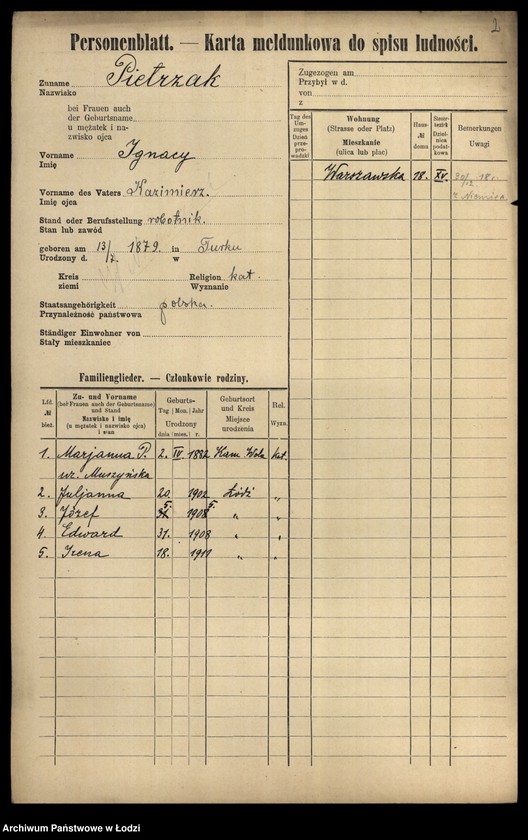 2
Personenblatt. — Karta meldunkowa do spisu ludności.
Zuname Pietrzak
Nazwisko
bei Frauen auch
der Geburtsname
u mężatek i na-
zwisko ojca
Vorname Ignacy
Imię
Vorname des Vaters Kazimierz.
Imię ojca
Stand oder Berufsstellung robotnik.
Stan lub zawód
geboren am 13/7. 1879. in Turku
Urodzony d. w
Kreis Religion kat.
ziemi Wyznanie
Staatsangehörigkeit polska.
Przynależność państwowa
Ständiger Einwohner von
Stały mieszkaniec
Zugezogen am
Przybył w d.
von
z
Tag des Um-zuges Dzień prze-pro-wadzki
Wohnung (Strasse oder Platz) Mieszkanie (ulica lub plac)
Haus- № domu
Steuer-bezirk Dziel-nica podat-kowa
Bemerkungen Uwagi
Warszawska 18. XV. 20/12 18.
z Niemiec
Familienglieder. — Członkowie rodziny.
Lfd. № bież.
Zu- und Vorname (bei Frauen auch der Geburtsname) und Stand Nazwisko i imię (u mężatek i nazwisko ojca) i stan
Geburts- Tag Mon. Jahr Urodzony dnia mies. r.
Geburtsort und Kreis Miejsce urodzenia
Rel. Wyzn.
1. Marjanna P. 2. IV. 1882 Kam. Wola kat.
wz. Muszyńska
2. Juljanna 20. 1902 Łódź „
3. Józef 5. 5.
4. Edward 31. 1908 „ „
5. Irena 18. „ „